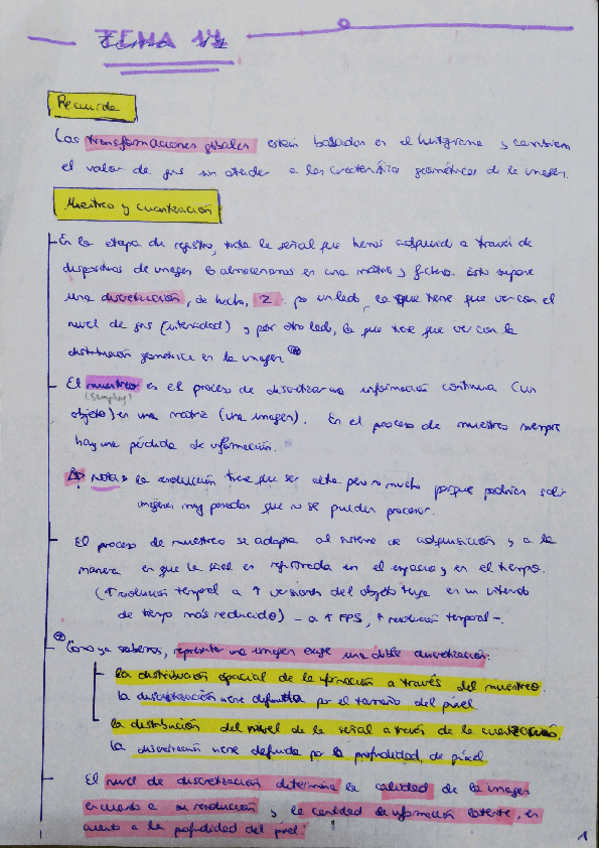 TEMA 14
Recuerda
Las transformaciones globales están basadas en el histograma y cambian
el valor de gris sin atender a las características geométricas de la imagen.
Muestreo y cuantización
En la etapa de registro, toda la señal que hemos adquirido a través de
dispositivos de imagen la almacenamos en una matriz y fichero. Esto supone
una discretización, de hecho, 2: por un lado, la que tiene que ver con el
nivel de gris (intensidad) y por otro lado, la que tiene que ver con la
distribución geométrica en la imagen.
El muestreo es el proceso de discretizar una información continua (un
(Sampling)
objeto) en una matriz (una imagen). En el proceso de muestreo siempre
hay una pérdida de información.
Nota: la resolución tiene que ser alta pero no mucho porque podrían salir
imágenes muy pesadas que no se pueden procesar.
El proceso de muestreo se adapta al sistema de adquisición y a la
manera en que la señal es registrada en el espacio y en el tiempo.
(↑ resolución temporal a ↑ versiones del objeto en un intervalo
de tiempo más reducido) - a ↑ FPS, ↑ resolución temporal -.
Como ya sabemos, representar una imagen exige una doble discretización:
La distribución espacial de la información a través del muestreo.
La discretización viene definida por el tamaño del píxel.
La distribución del nivel de la señal a través de la cuantización.
La discretización viene definida por la profundidad de píxel.
El nivel de discretización determina la calidad de la imagen
en cuanto a su resolución y la cantidad de información latente, en
cuanto a la profundidad del píxel.
1